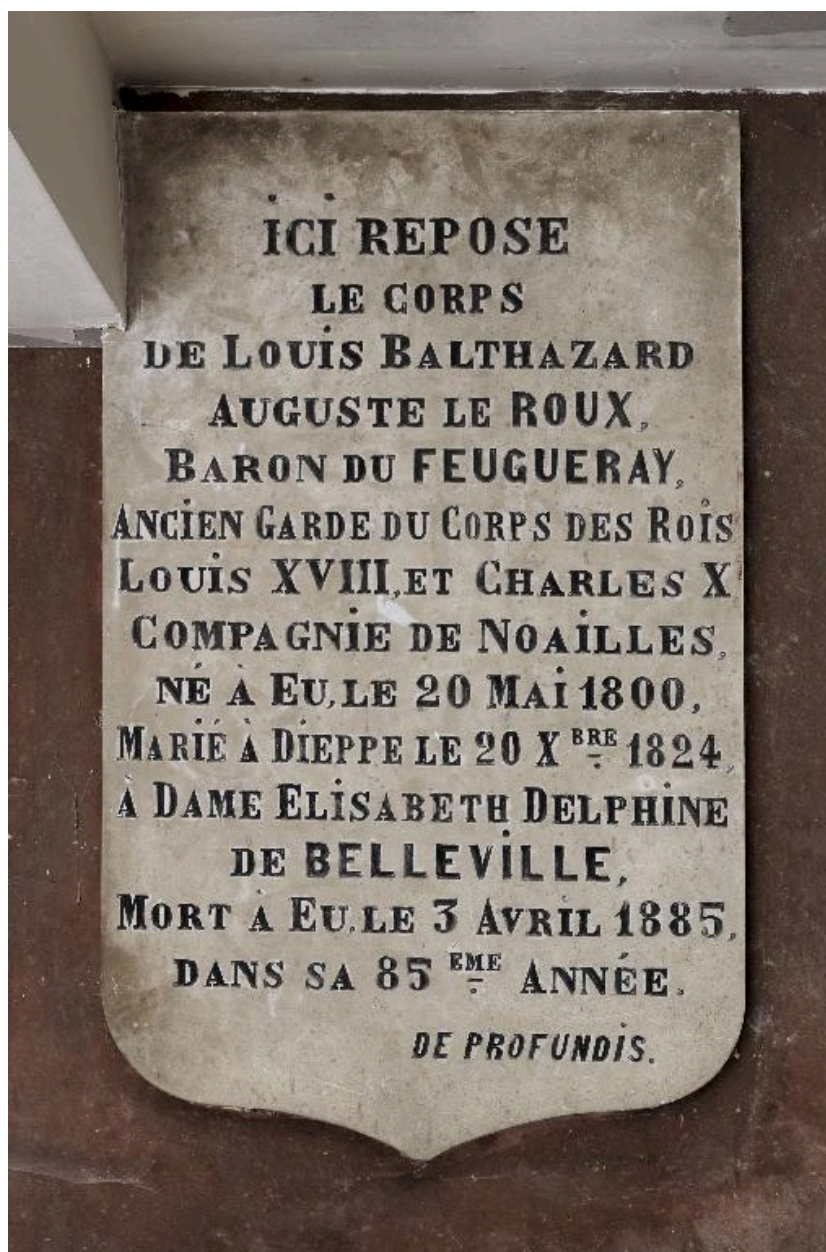 ICI REPOSE
LE CORPS
DE LOUIS BALTHAZARD
AUGUSTE LE ROUX,
BARON DU FEUGUERAY,
ANCIEN GARDE DU CORPS DES ROIS
LOUIS XVIII, ET CHARLES X
COMPAGNIE DE NOAILLES,
NÉ À EU, LE 20 MAI 1800,
MARIÉ À DIEPPE LE 20 XBRE 1824,
À DAME ELISABETH DELPHINE
DE BELLEVILLE,
MORT À EU, LE 3 AVRIL 1885,
DANS SA 85EME ANNÉE.
DE PROFUNDIS.